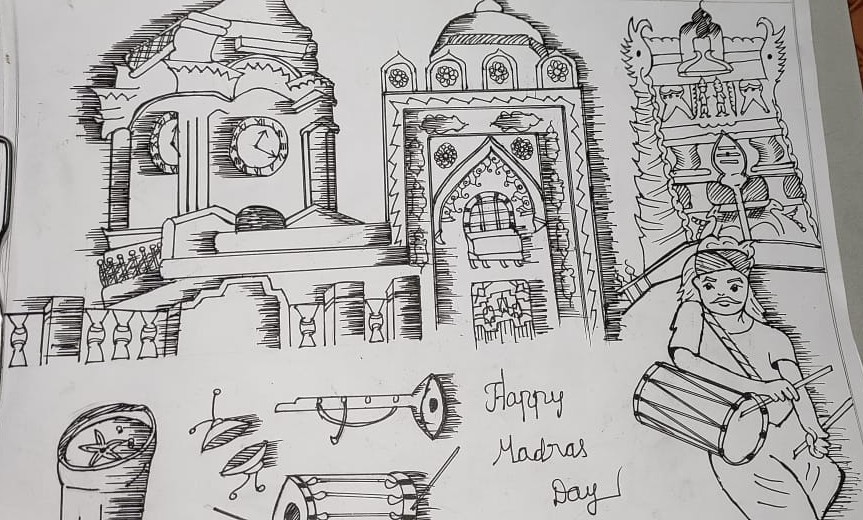 Happy
Madras
Day